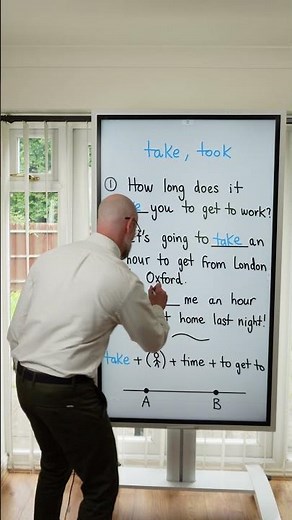 take, took
① How long does it
you to get to work?
going to take an
hour to get from London
Oxford.
me an hour
home last night!
take + ( ) + time + to get to
A B